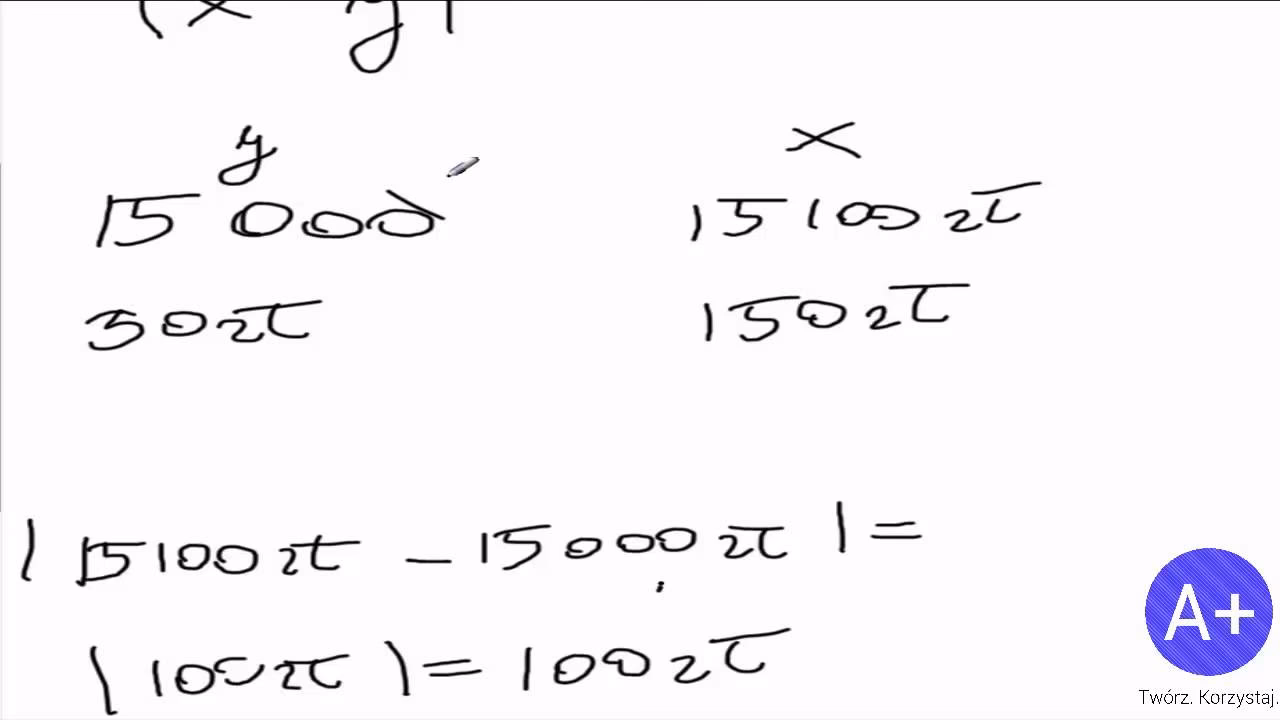 |x y|
y x
15 000 15 100 zł
30 zł 150 zł
| 15100 zł - 15 000 zł | =
| 100 zł | = 100 zł
A+
Twórz. Korzystaj.